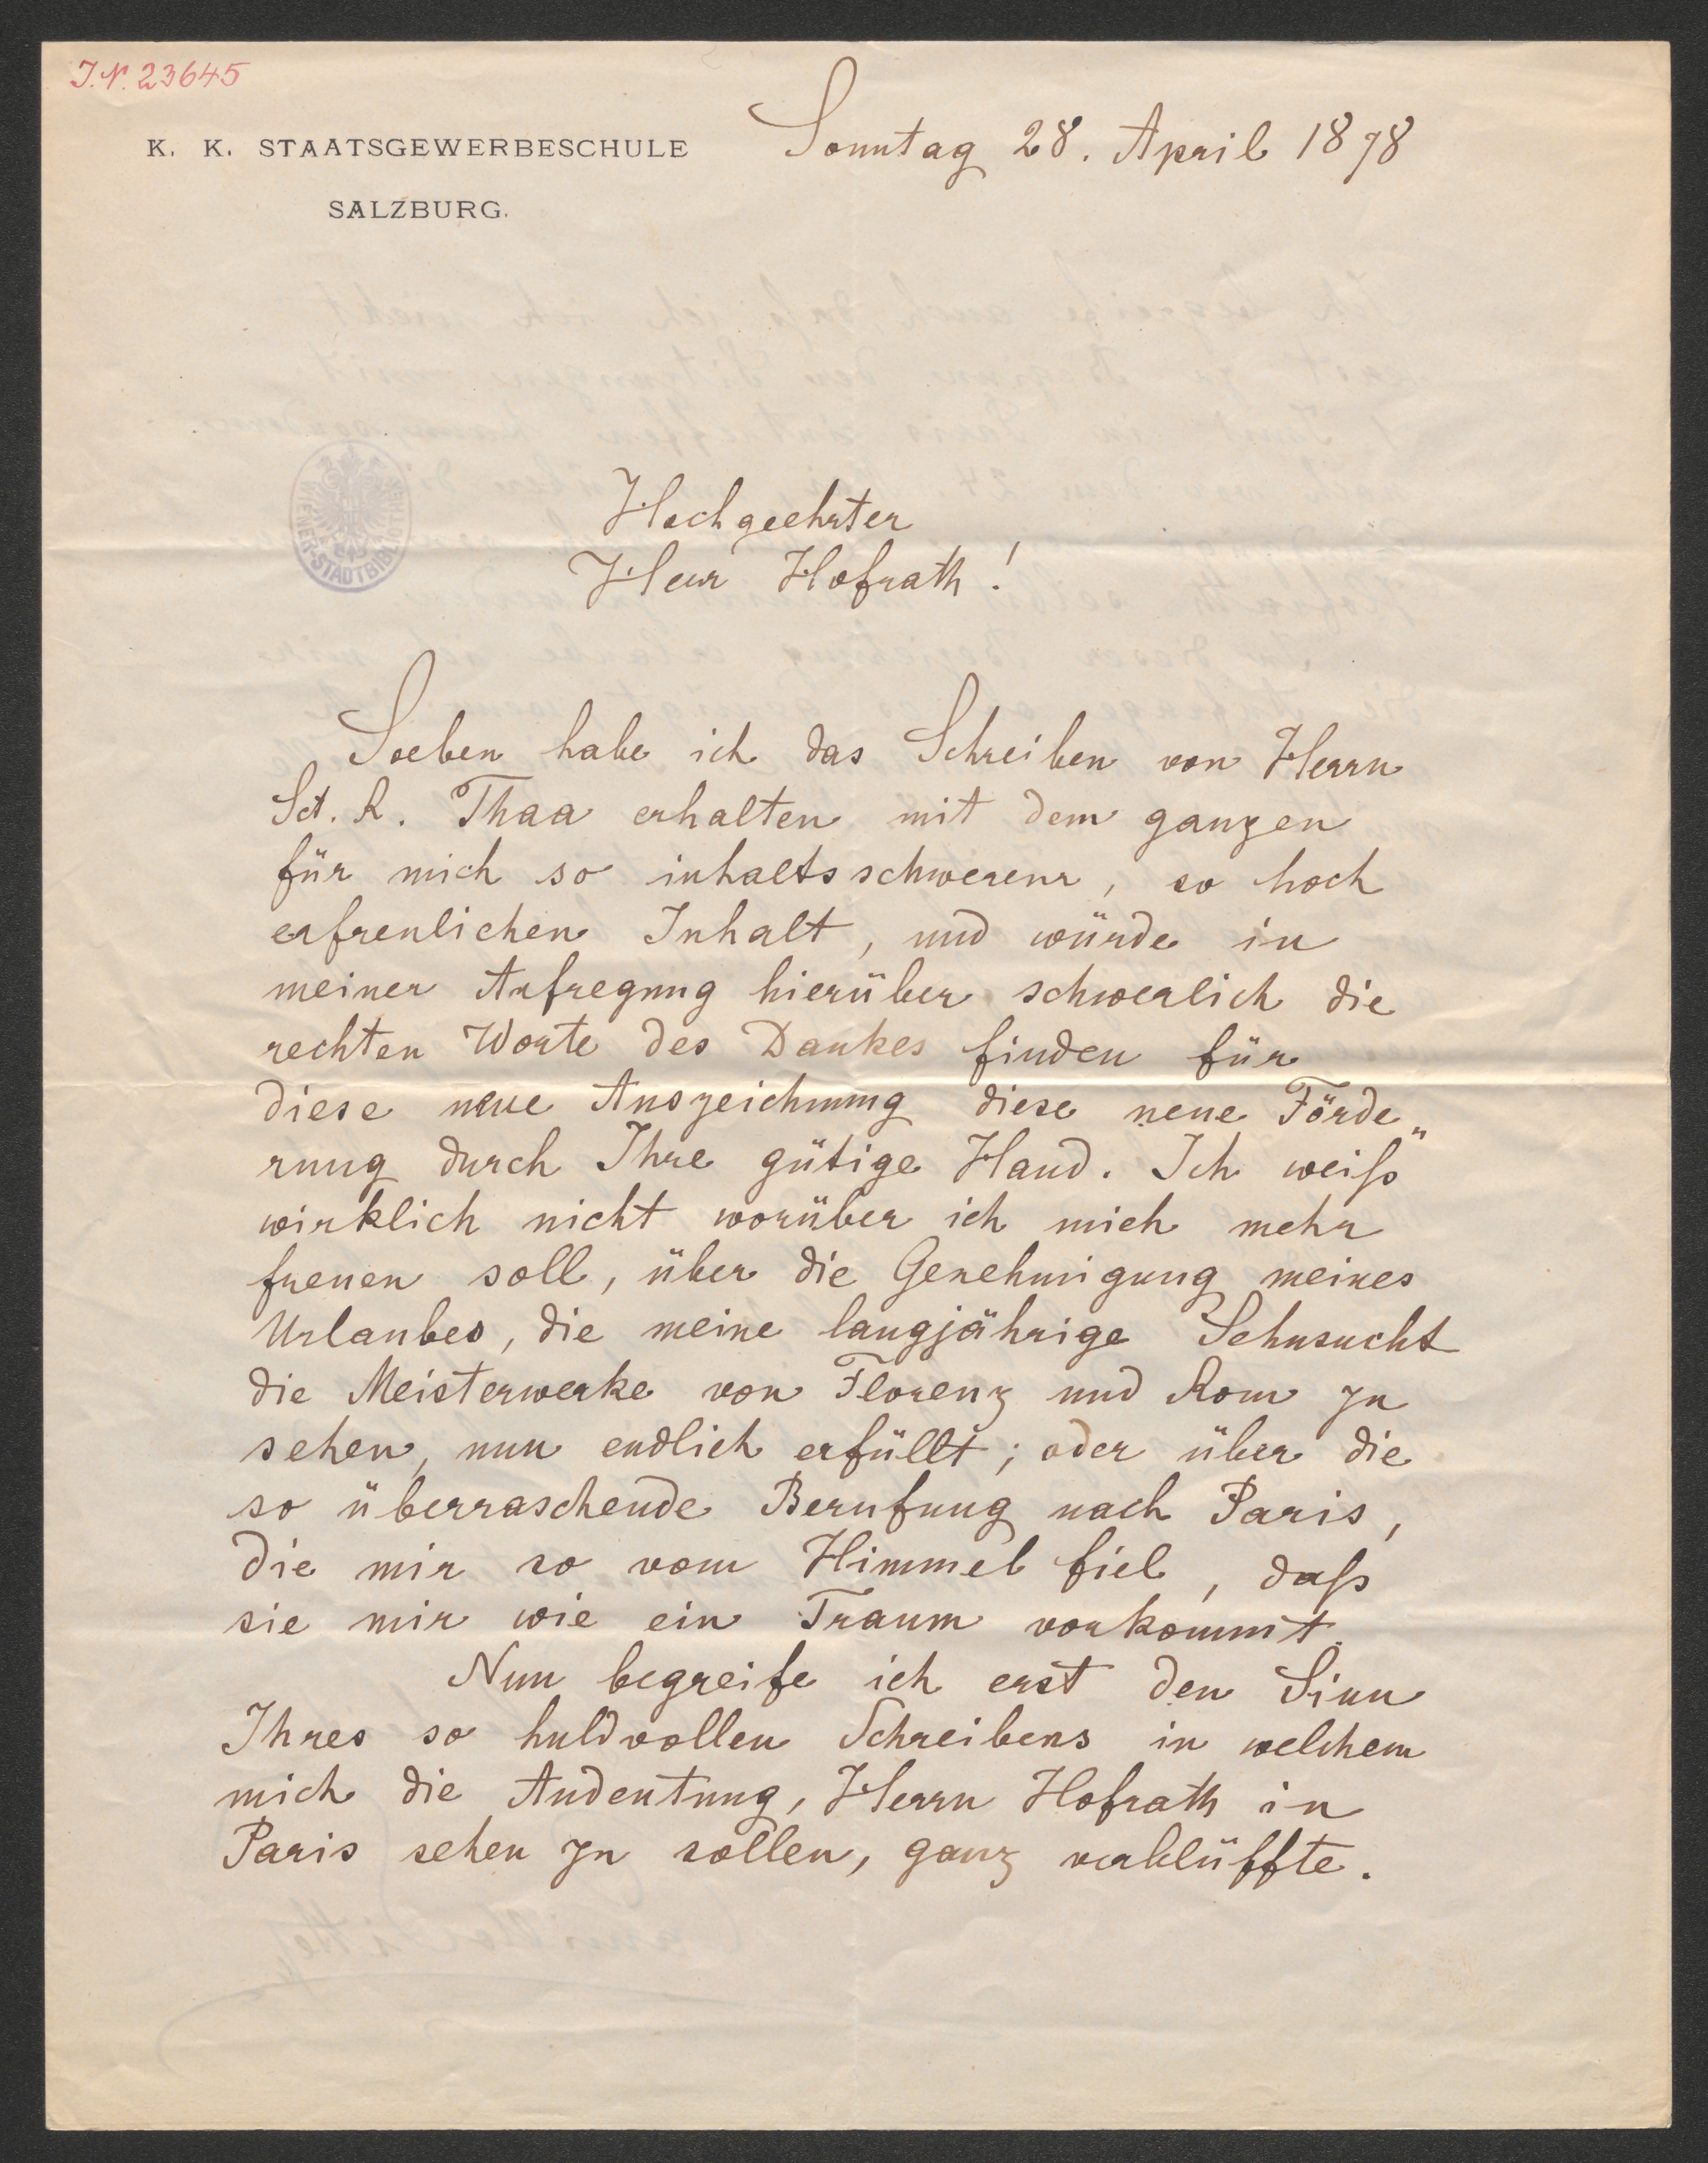 I.N. 23645
K. K. STAATSGEWERBESCHULE
SALZBURG.
Sonntag 28. April 1878
WIENER-STADTBIBLIOTHEK
Hochgeehrter
Herr Hofrath!
Soeben habe ich das Schreiben von Herrn
Sct. R. Thaa erhalten mit dem ganzen
für mich so inhaltsschweren, so hoch
erfreulichen Inhalt, und würde in
meiner Aufregung hierüber schwerlich die
rechten Worte des Dankes finden für
diese neue Auszeichnung diese neue Förde„
rung durch Ihre gütige Hand. Ich weiß
wirklich nicht worüber ich mich mehr
freuen soll, über die Genehmigung meines
Urlaubes, die meine langjährige Sehnsucht
die Meisterwerke von Florenz und Rom zu
sehen, nun endlich erfüllt; oder über die
so überraschende Berufung nach Paris,
die mir so vom Himmel fiel, daß
sie mir wie ein Traum vorkommt.
Nun begreife ich erst den Sinn
Ihres so huldvollen Schreibens in welchem
mich die Andeutung, Herrn Hofrath in
Paris sehen zu sollen, ganz verblüffte.